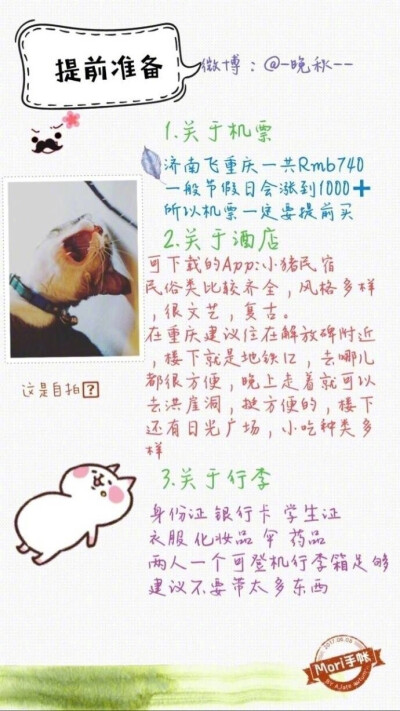 提前准备
微博：@-晚秋--
1.关于机票
济南飞重庆一共Rmb740
一般节假日会涨到1000+
所以机票一定要提前买
2.关于酒店
可下载的App:小猪民宿
民俗类比较齐全，风格多样
，很文艺，复古。
在重庆建议住在解放碑附近
，楼下就是地铁口，去哪儿
都很方便，晚上走着就可以
去洪崖洞，挺方便的，楼下
还有日光广场，小吃种类多
样
这是自拍?
3.关于行李
身份证 银行卡 学生证
衣服 化妆品 伞 药品
两人一个可登机行李箱足够
建议不要带太多东西
Mori手帐